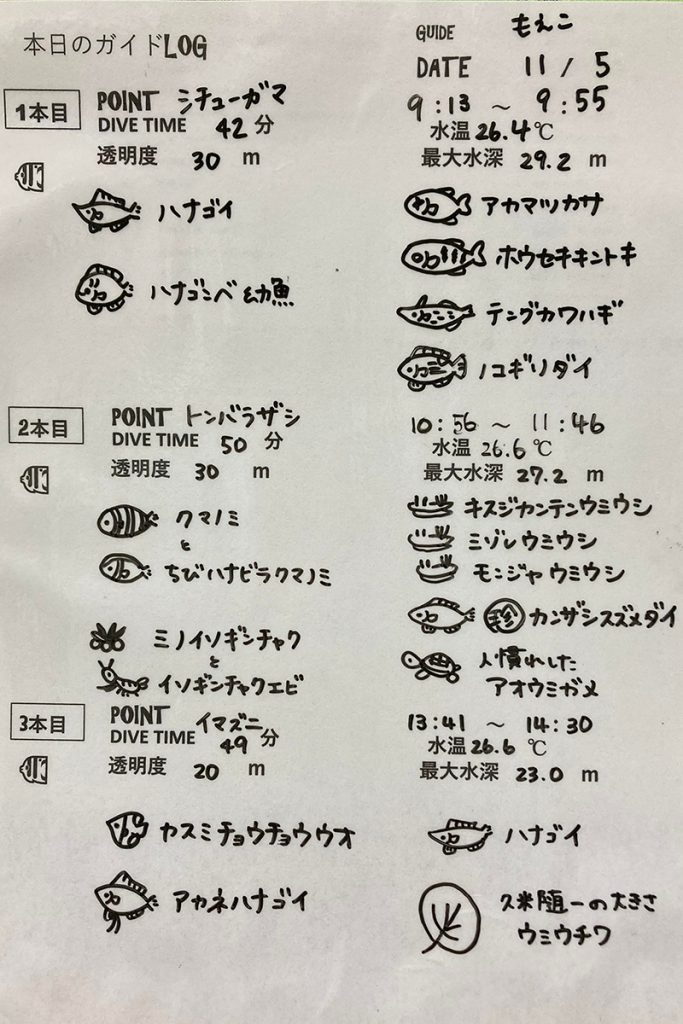 本日のガイドLOG
GUIDE もえこ
DATE 11 / 5
1本目
POINT シチューガマ
9:13 ～ 9:55
DIVE TIME 42分
水温 26.4℃
透明度 30 m
最大水深 29.2 m
ハナゴイ
ハナゴンベ幼魚
アカマツカサ
ホウセキキントキ
テングカワハギ
ノコギリダイ
2本目
POINT トンバラザシ
10:56 ～ 11:46
DIVE TIME 50 分
水温 26.6℃
透明度 30 m
最大水深 27.2 m
クマノミ
と
ちびハナビラクマノミ
ミノイソギンチャク
と
イソギンチャクエビ
キスジカンテンウミウシ
ミゾレウミウシ
モンジャウミウシ
珍 カンザシスズメダイ
人慣れした
アオウミガメ
3本目
POINT イマズニ
13:41 ～ 14:30
DIVE TIME 49分
水温 26.6℃
透明度 20 m
最大水深 23.0 m
カスミチョウチョウウオ
アカネハナゴイ
ハナゴイ
久米随一の大きさ
ウミウチワ